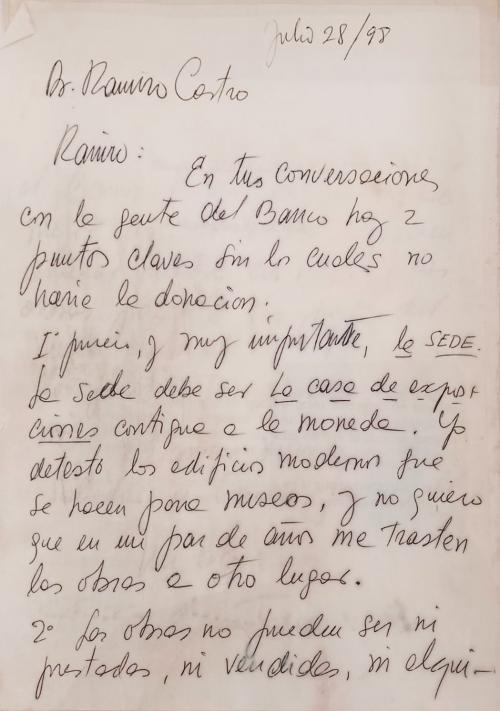 Julio 28/98
Dr. Ramiro Castro
Ramiro:
En tus conversaciones
con la gente del Banco hay 2
puntos claves sin los cuales no
haria la donacion.
y muy importante, la SEDE.
La sede debe ser La casa de exposi
ciones contigua a la moneda. Yo
detesto los edificios modernos que
se hacen para museos, y no quiero
que en un par de años me trasten
las obras a otro lugar.
2º Las obras no pueden ser ni
prestadas, ni vendidas, ni alqui-